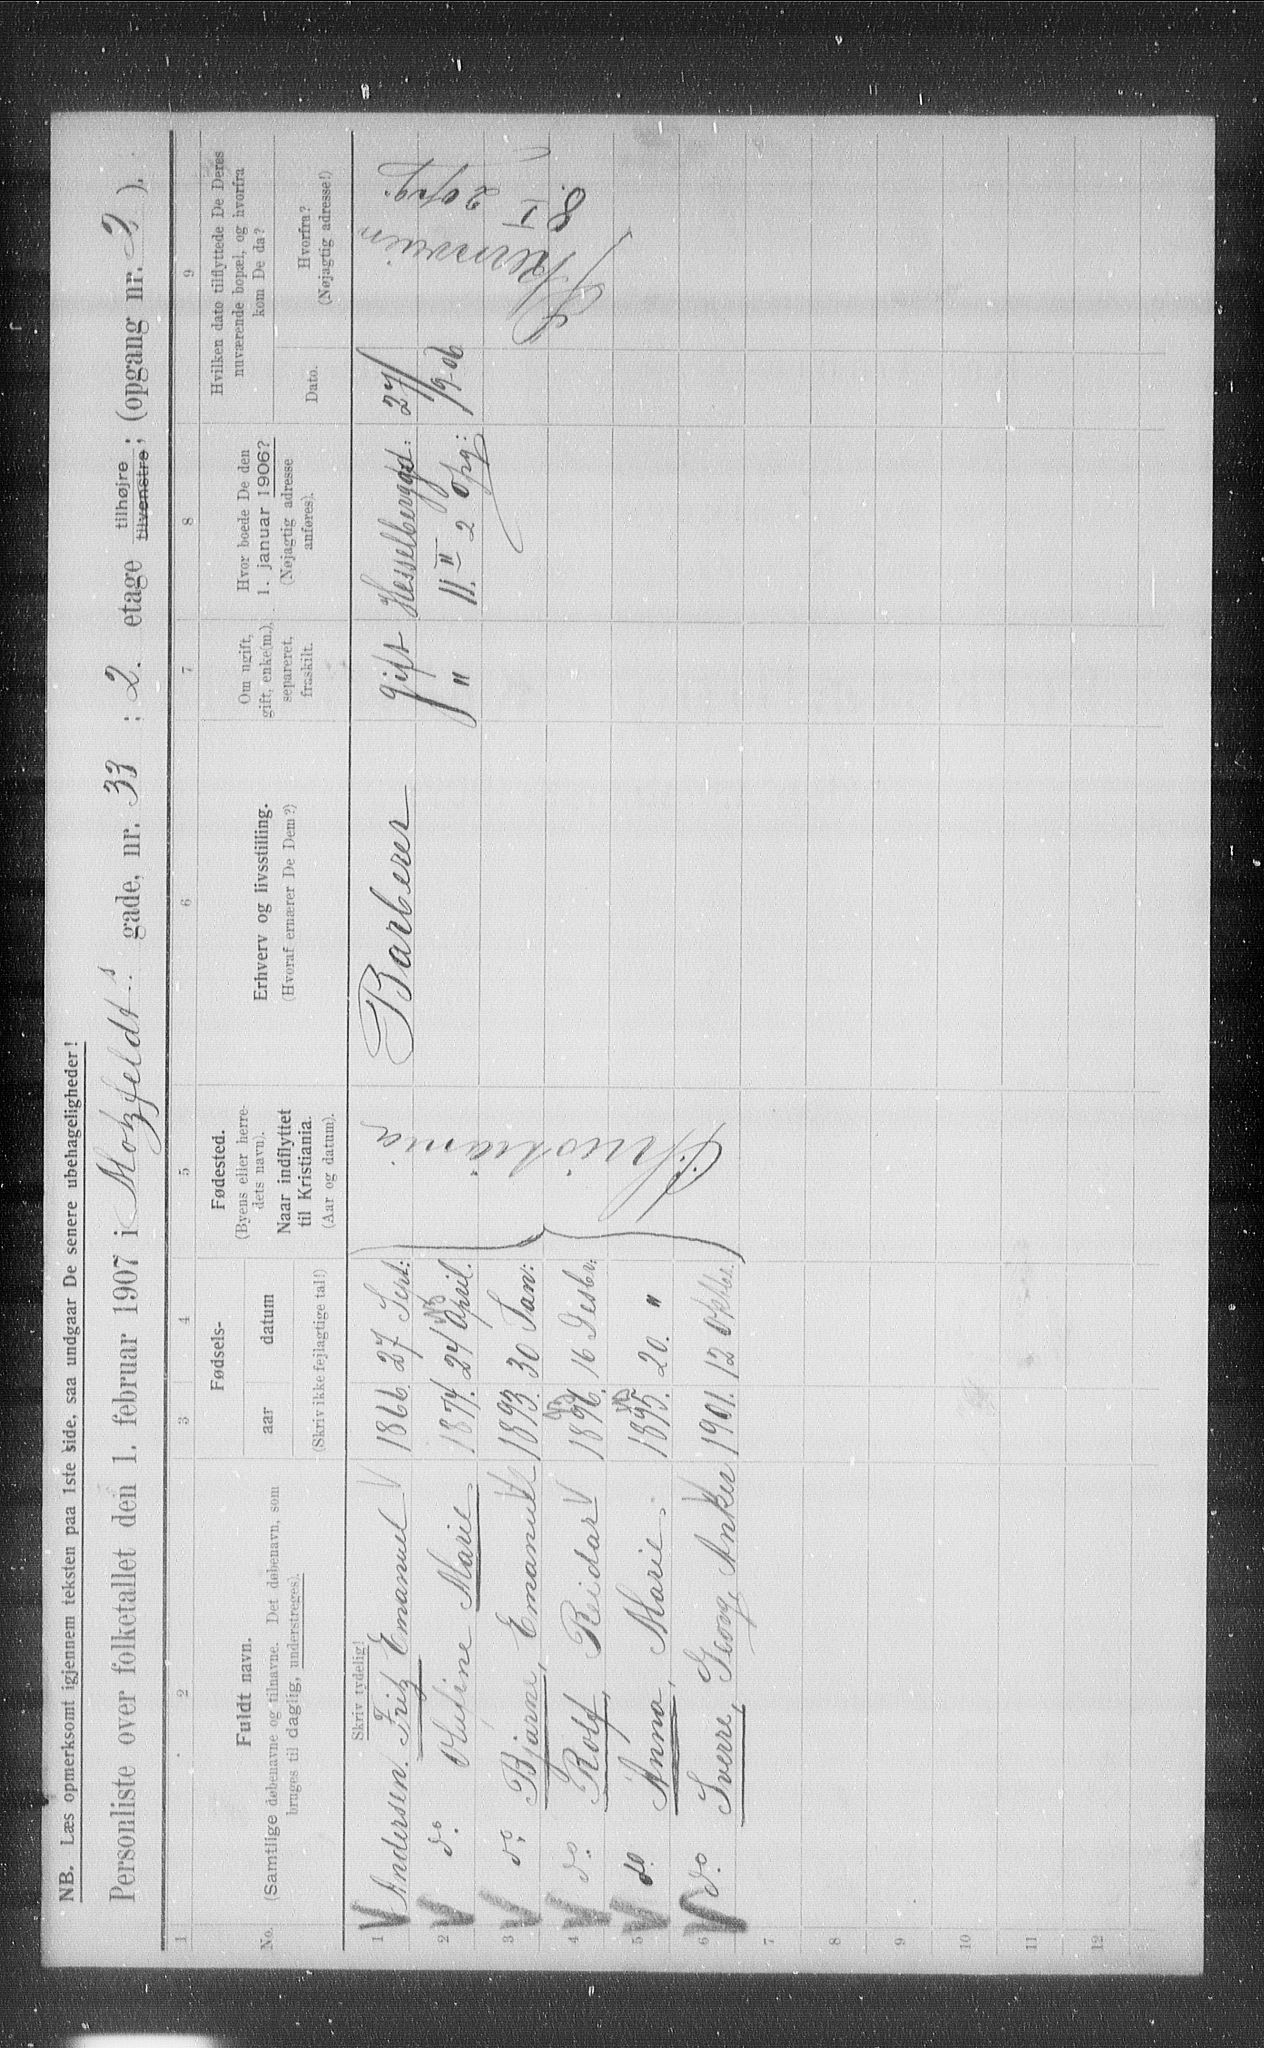 NB. Læs opmerksomt igjennem teksten paa 1ste side, saa undgaar De senere ubehageligheder!
Personliste over folketallet den 1. februar 1907 i Motzfeldt s gade, nr. 33 ; 2. etage tilhøjre tilvenstre; (opgang nr. 2 ).
1 2 3 4 5 6 7 8 9
No.
Fuldt navn.
(Samtlige døbenavne og tilnavne. Det døbenavn, som
bruges til daglig, understreges).
Fødsels-
aar datum
(Skriv ikke fejlagtige tal!)
Fødested.
(Byens eller herre-
dets navn).
Naar indflyttet
til Kristiania.
(Aar og datum).
Erhverv og livsstilling.
(Hvoraf ernærer De Dem?)
Om ugift,
gift, enke(m.),
separeret,
fraskilt.
Hvor boede De den
1. januar 1906?
(Nøjagtig adresse
anføres).
Hvilken dato tilflyttede De Deres
nuværende bopæl, og hvorfra
kom De da?
Dato.
Hvorfra?
(Nøjagtig adresse!)
Skriv tydelig!
1 Andersen. Fritz Emanuel 1866. 27 Sept: Barberer gift Hesselberggd: 27/
2 do. Olufine Marie 1874. 24 April. " 11. II 2 opg: /9-06
3 do. Bjarne, Emanuel 1893. 30 Jan:
4 do. Rolf, Reidar 1896. 16 Desbr:
5 do. Anna, Marie. 1895. 20. "
6 do. Sverre, Georg Anker 1901. 12 Oktbr.
Kristiania
8.
I
2 opg.
7
8
9
10
11
12